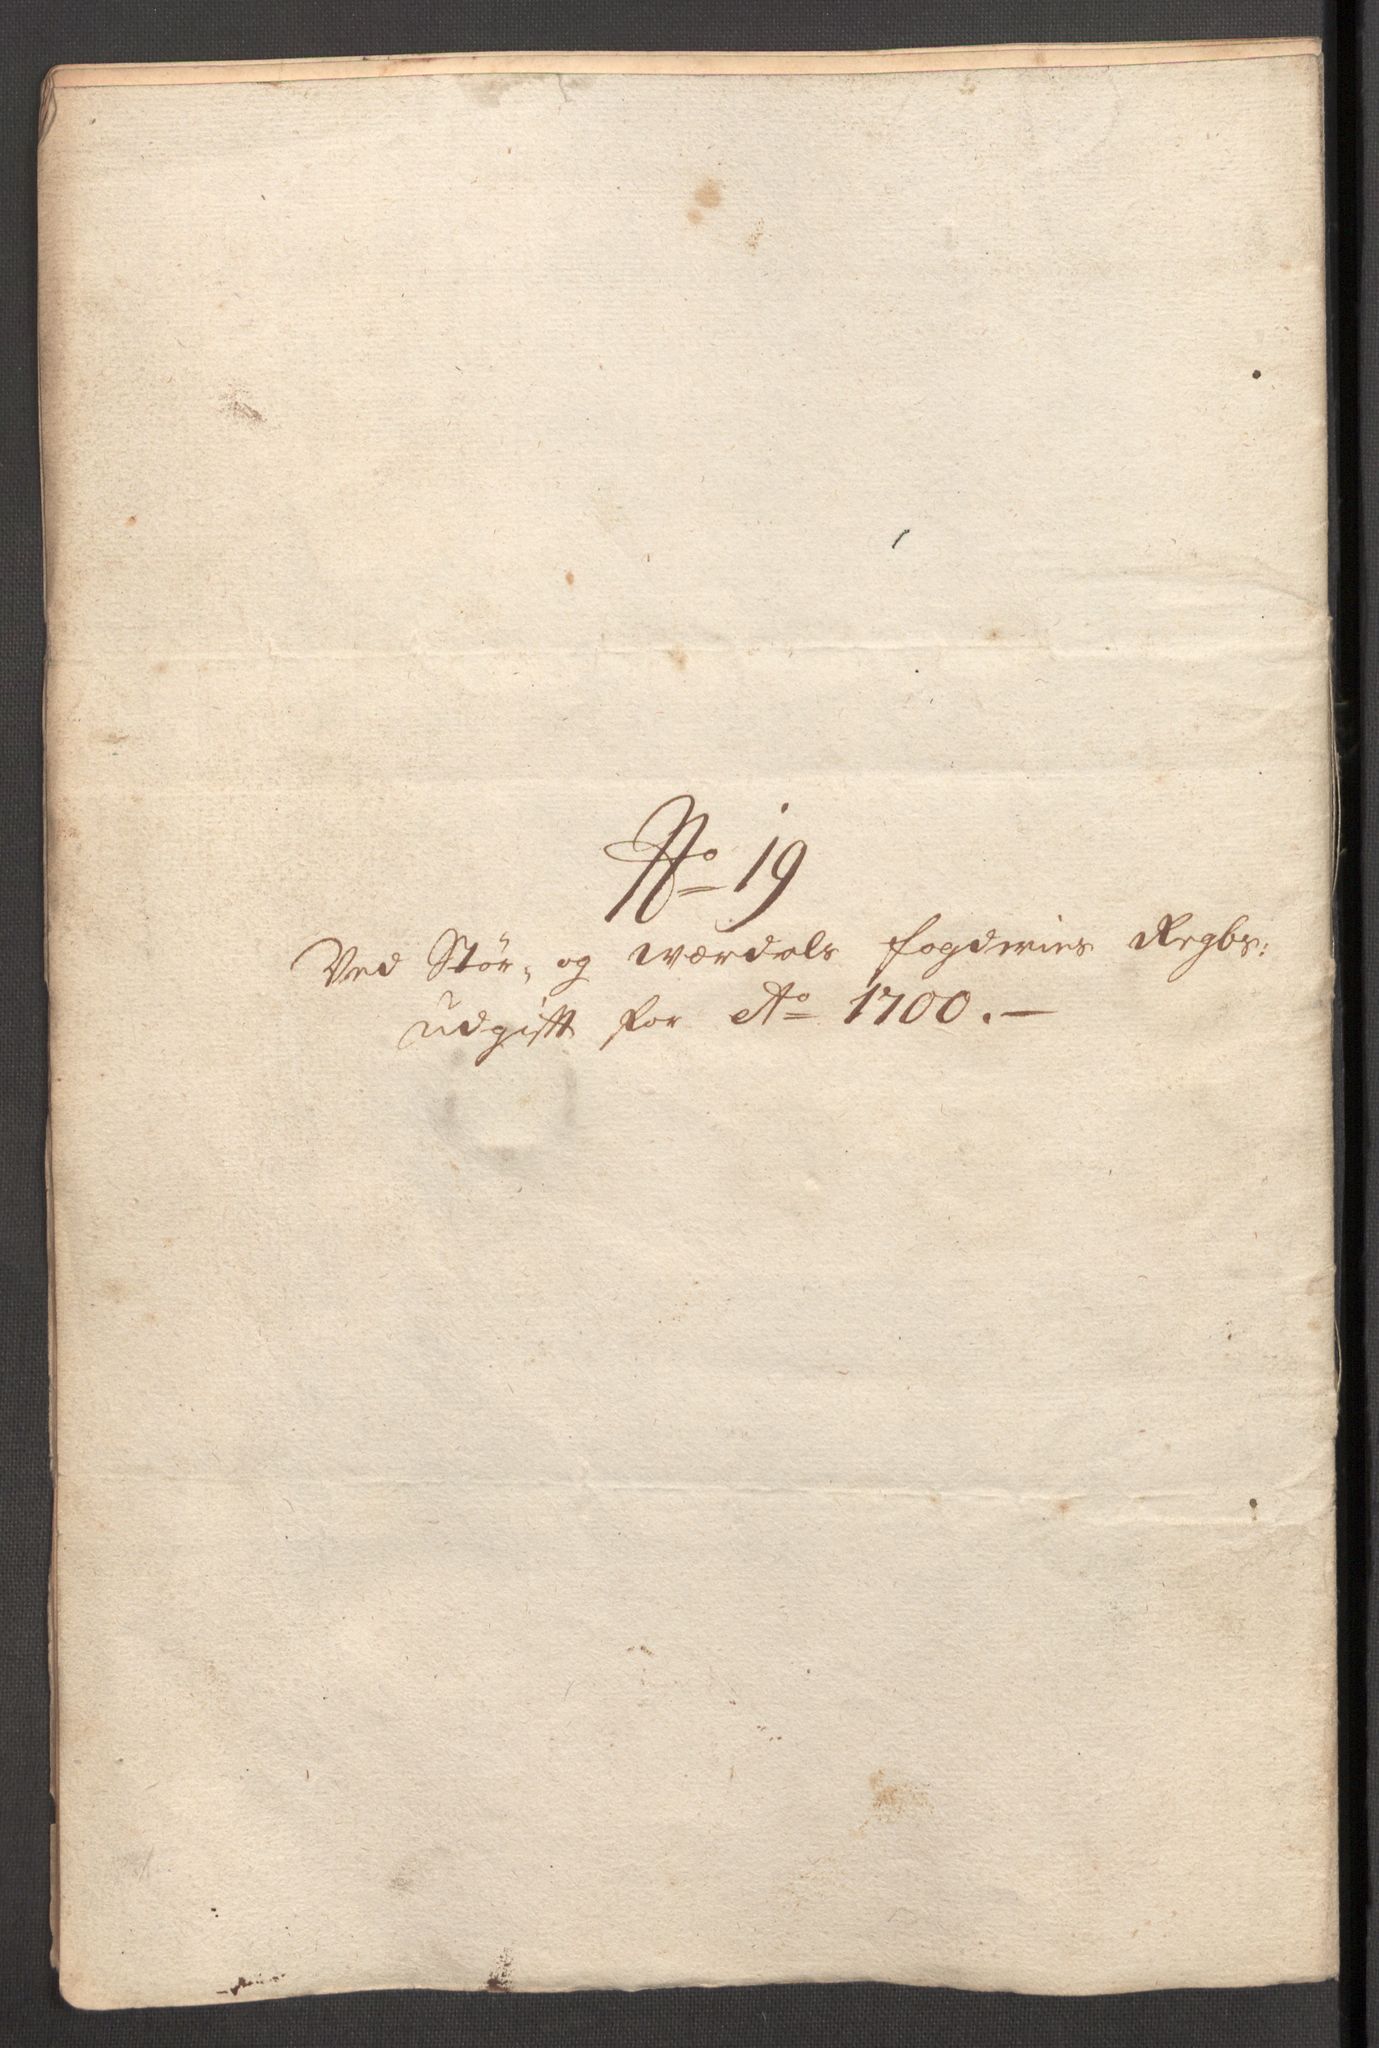 No 19
Ved Stør- og Værdals fogderies Regbs:
udgift for Ao 1700. -